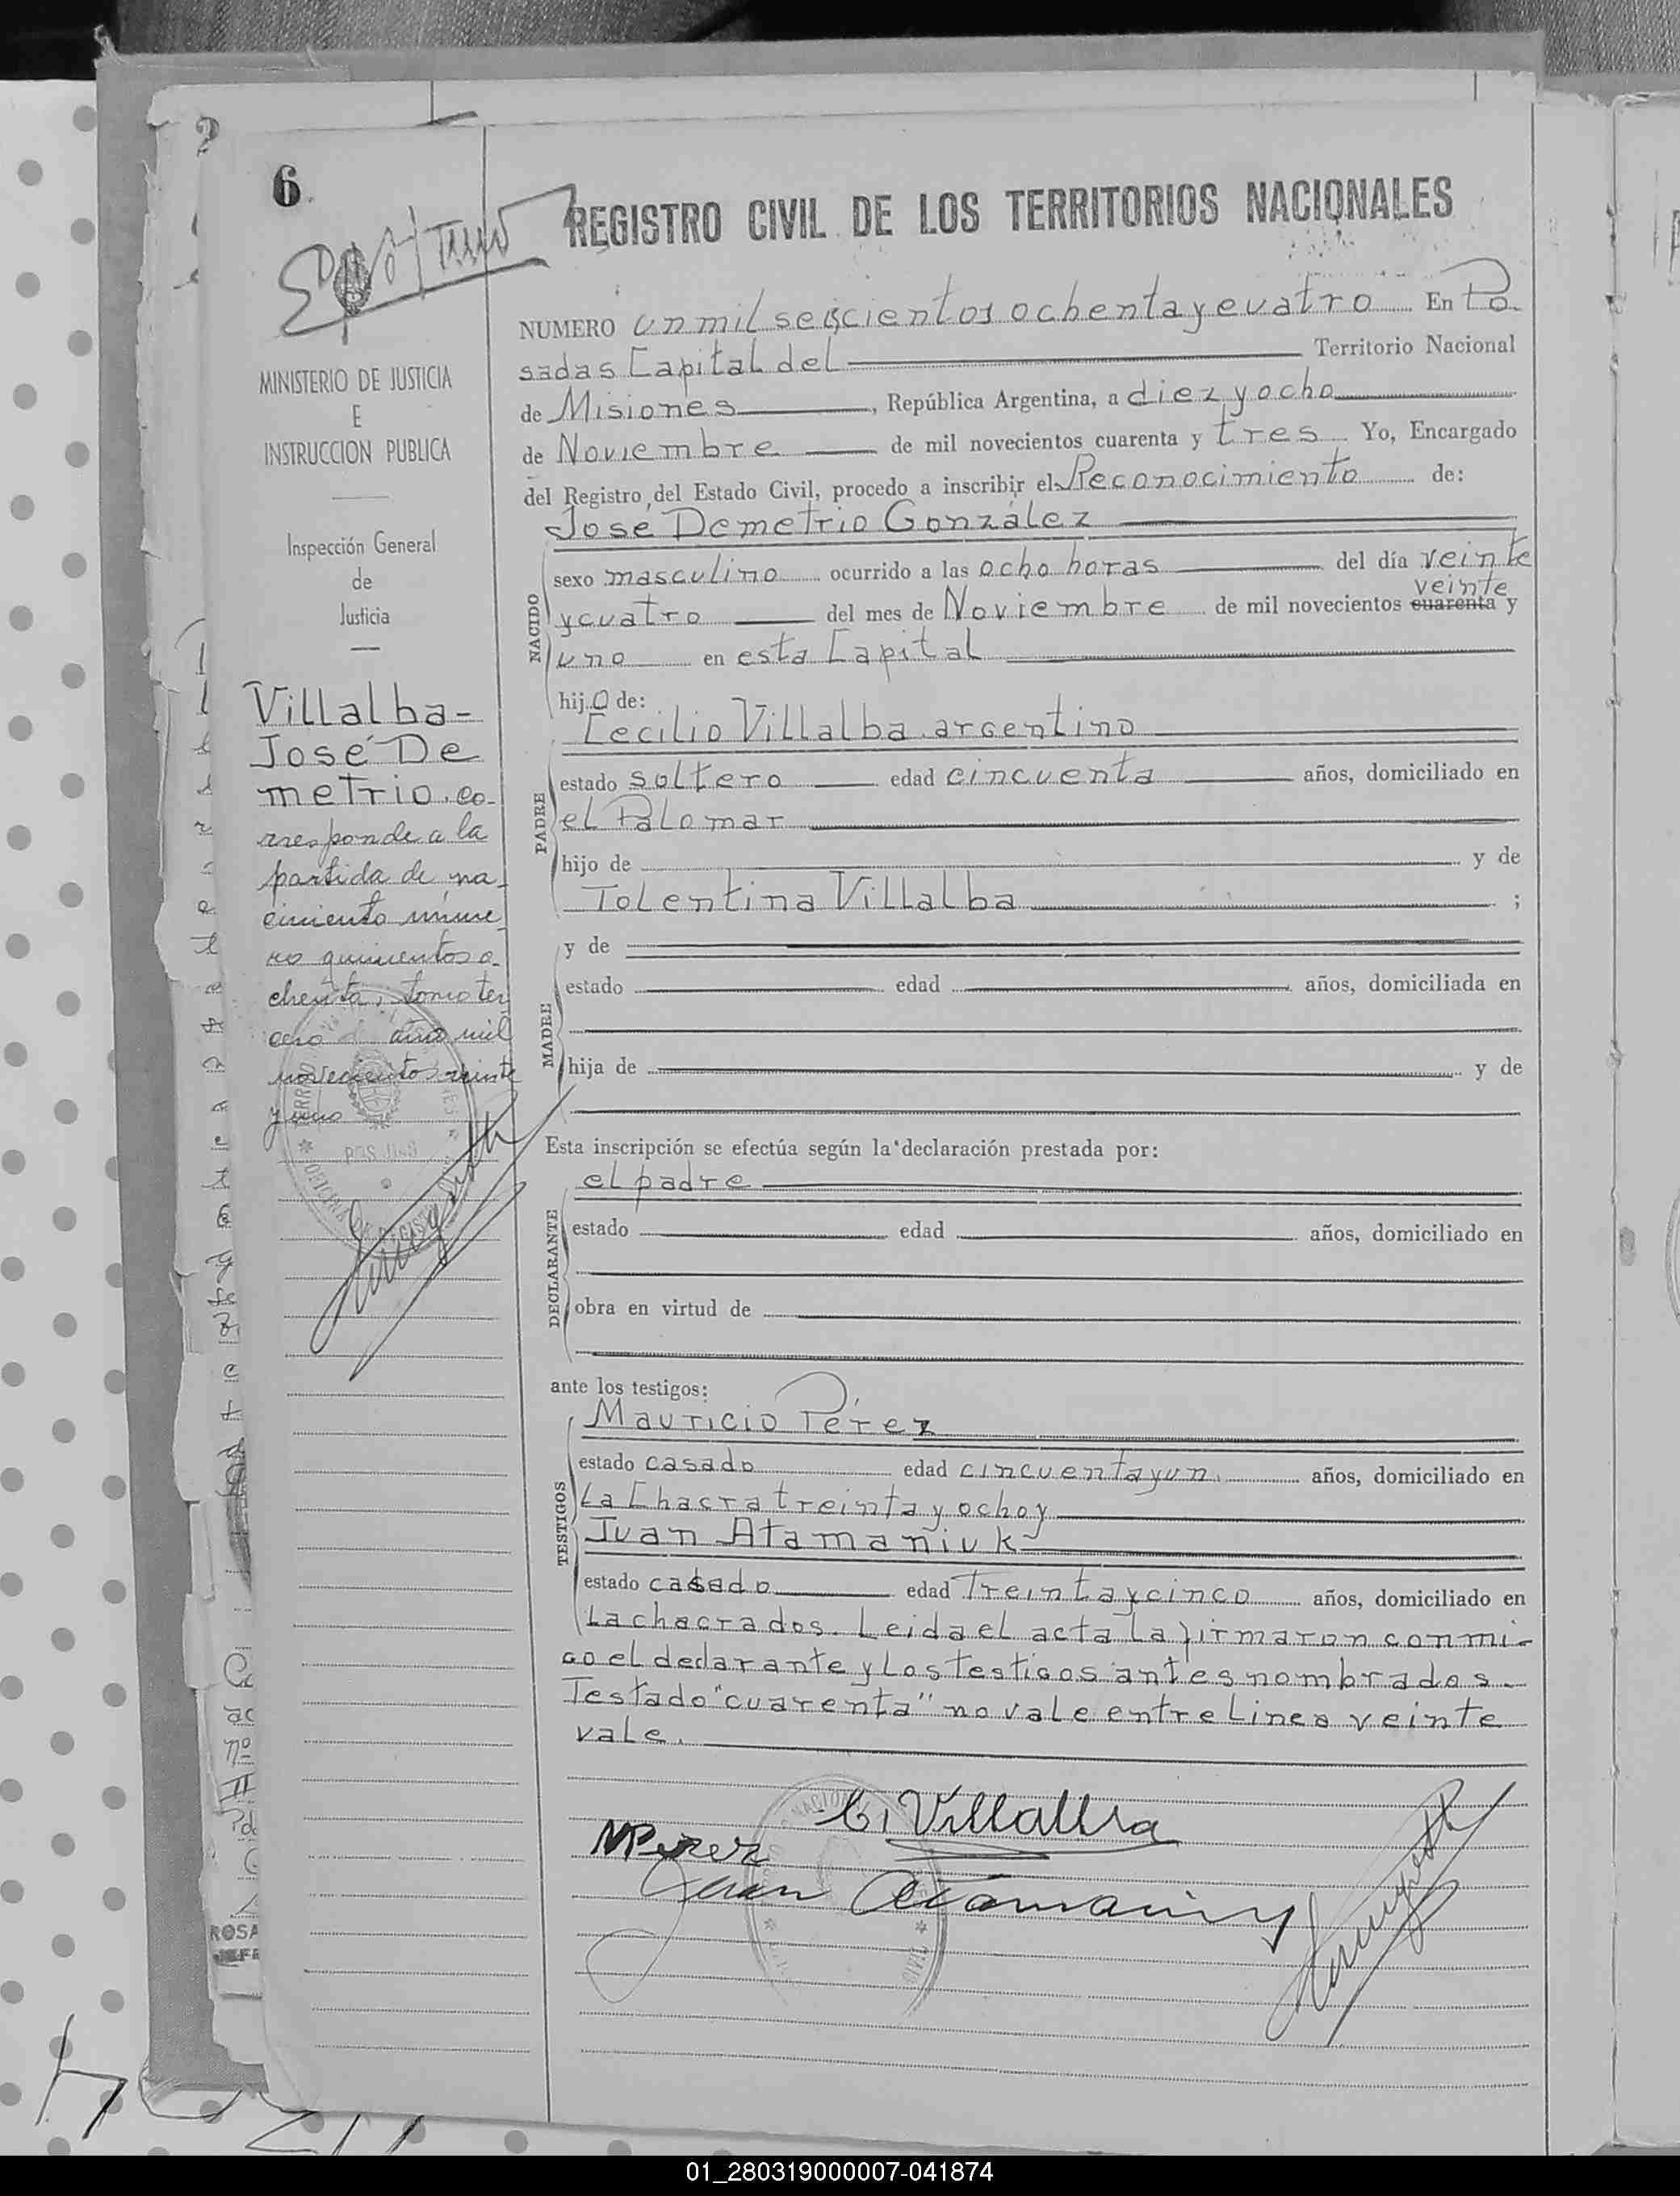 6
REGISTRO CIVIL DE LOS TERRITORIOS NACIONALES
MINISTERIO DE JUSTICIA
E
INSTRUCCION PUBLICA
Inspección General
de
Justicia
Villalba-
José De
metrio. co-
rresponde a la
partida de na-
cimiento núme
ro quinientos o-
chenta, tomo ter
cero año mil
novecientos veinte
y uno
NUMERO un mil seiscientos ochenta y cuatro En Po
sadas Capital del Territorio Nacional
de Misiones, República Argentina, a diez y ocho
de Noviembre de mil novecientos cuarenta y tres Yo, Encargado
del Registro del Estado Civil, procedo a inscribir el Reconocimiento de:
José Demetrio González
NACIDO
sexo masculino ocurrido a las ocho horas del día veinte
veinte
y cuatro del mes de Noviembre de mil novecientos cuarenta y
uno en esta Capital
hijo de:
Cecilio Villalba argentino
PADRE
estado soltero edad cincuenta años, domiciliado en
el Palomar
hijo de y de
Tolentina Villalba ;
MADRE
y de
estado edad años, domiciliada en
hija de y de
Esta inscripción se efectúa según la declaración prestada por:
el padre
DECLARANTE
estado edad años, domiciliado en
obra en virtud de
ante los testigos:
Mauricio Pérez
TESTIGOS
estado casado edad cincuenta y un años, domiciliado en
La Chacra treinta y ocho y
Juan Atamaniuk
estado casado edad Treinta y cinco años, domiciliado en
La chacra dos. Leida el acta la firmaron conmi-
go el declarante y los testigos antes nombrados.
Testado "cuarenta" no vale entre linea veinte
vale.
C. Villalba
M Perez
Juan
01_280319000007-041874